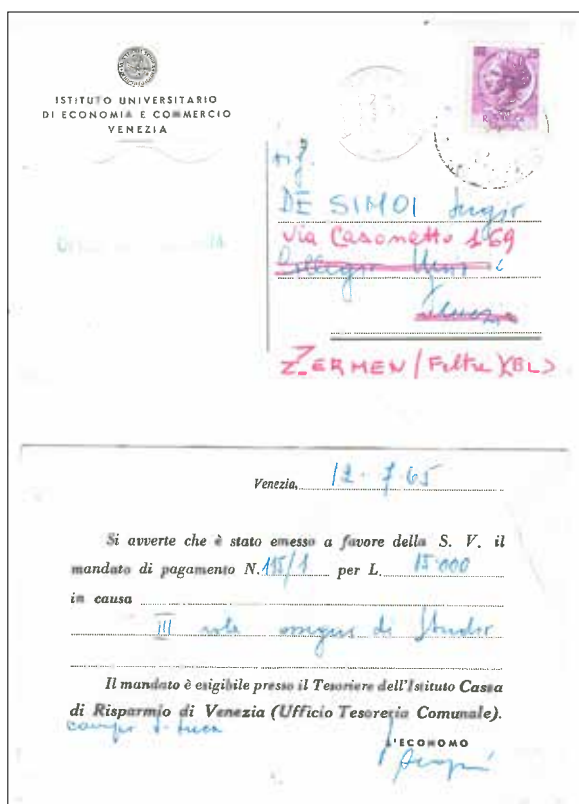 ISTITUTO UNIVERSITARIO
DI ECONOMIA E COMMERCIO
VENEZIA
25
sig.
DE SIMOI Sergio
Via Casonetto 169
Collegio
Venezia
ZERMEN / Feltre (BL)
Venezia, 12-7-65
Si avverte che è stato emesso a favore della S. V. il
mandato di pagamento N. 115/1 per L. 15.000
in causa
III rata assegno di Studio
Il mandato è esigibile presso il Tesoriere dell'Istituto Cassa
di Risparmio di Venezia (Ufficio Tesoreria Comunale).
campo S. Luca
L'ECONOMO